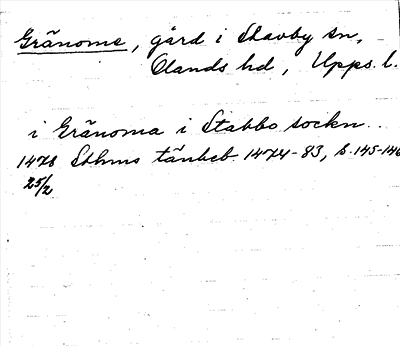 Gränome, gård i Skavby sn,
Olands hd, Upps. l.
i Gränoma i Stabbo sockn..
1478 Sthms tänkeb. 1474-83, s. 145-146
25/2